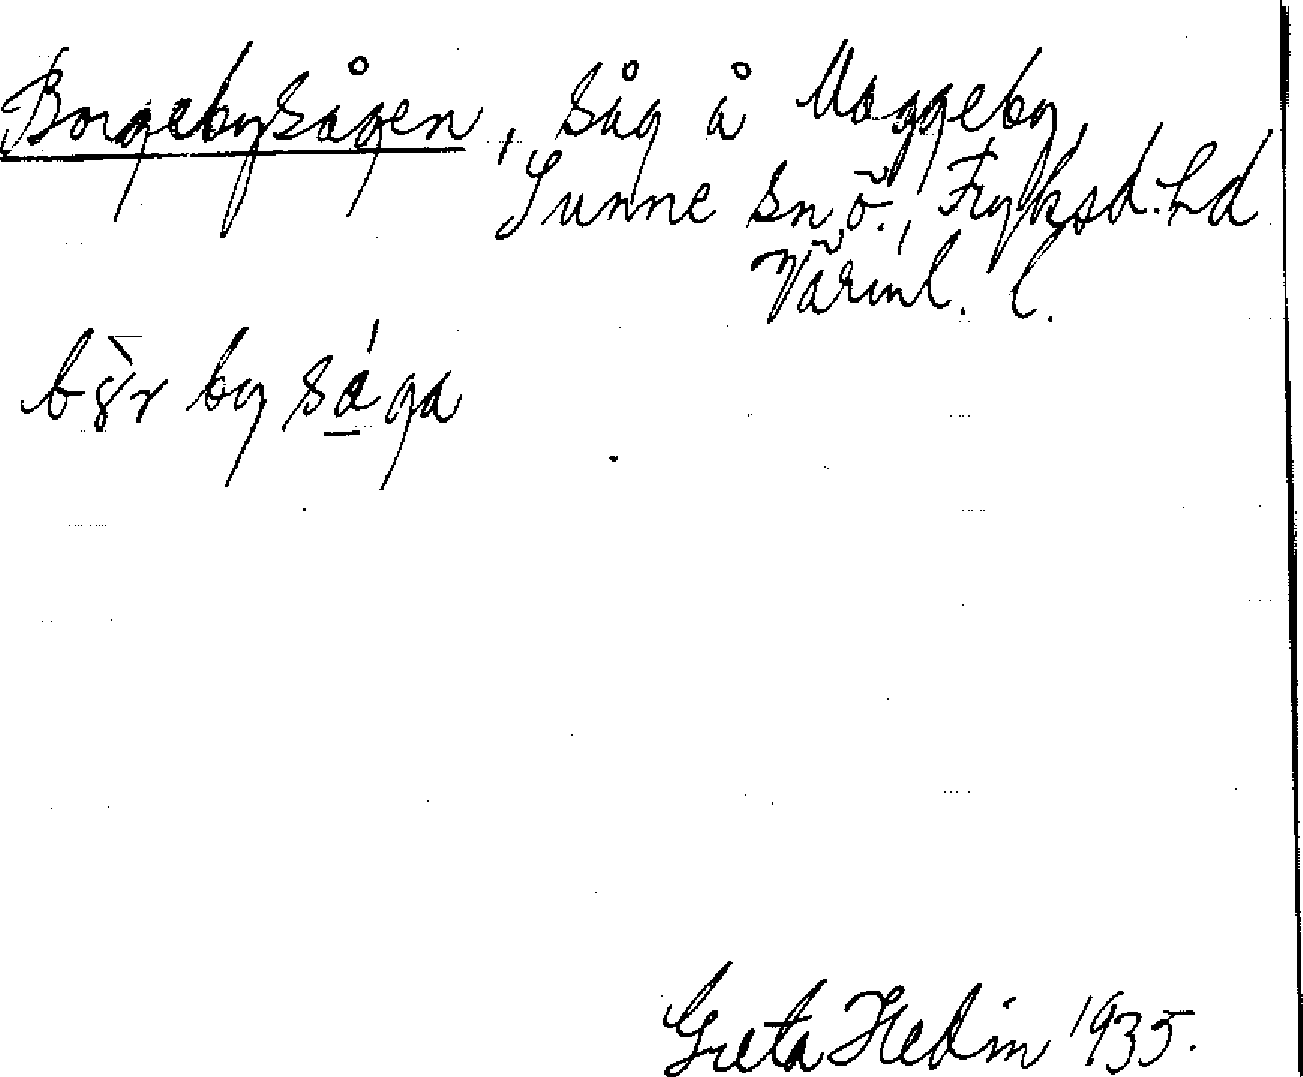 Borgebysågen, Såg å Uggeby
Sunne sn, ö., Fryksd. hd
Värml. l.
by såga
Greta Hedin 1935.